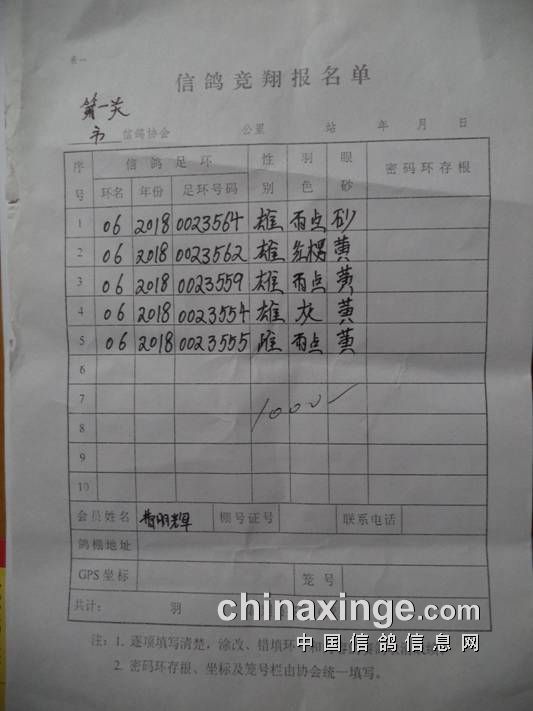 表一
信鸽竞翔报名单
第一关
市 信鸽协会 公里 站 年 月 日
序号 信鸽足环 性别 羽色 眼砂 密码环存根
环名 年份 足环号码
1 06 2018 0023564 雄 雨点 砂
2 06 2018 0023562 雄 红楞 黄
3 06 2018 0023559 雄 雨点 黄
4 06 2018 0023554 雄 灰 黄
5 06 2018 0023555 雌 雨点 黄
6
7
8
9
10
1000
会员姓名 棚号证号 联系电话
鸽棚地址
GPS 坐标 笼号
共计: 羽
chinaxinge.com
中国信鸽信息网
注: 1. 逐项填写清楚，涂改、错填环
2. 密码环存根、坐标及笼号栏由协会统一填写。